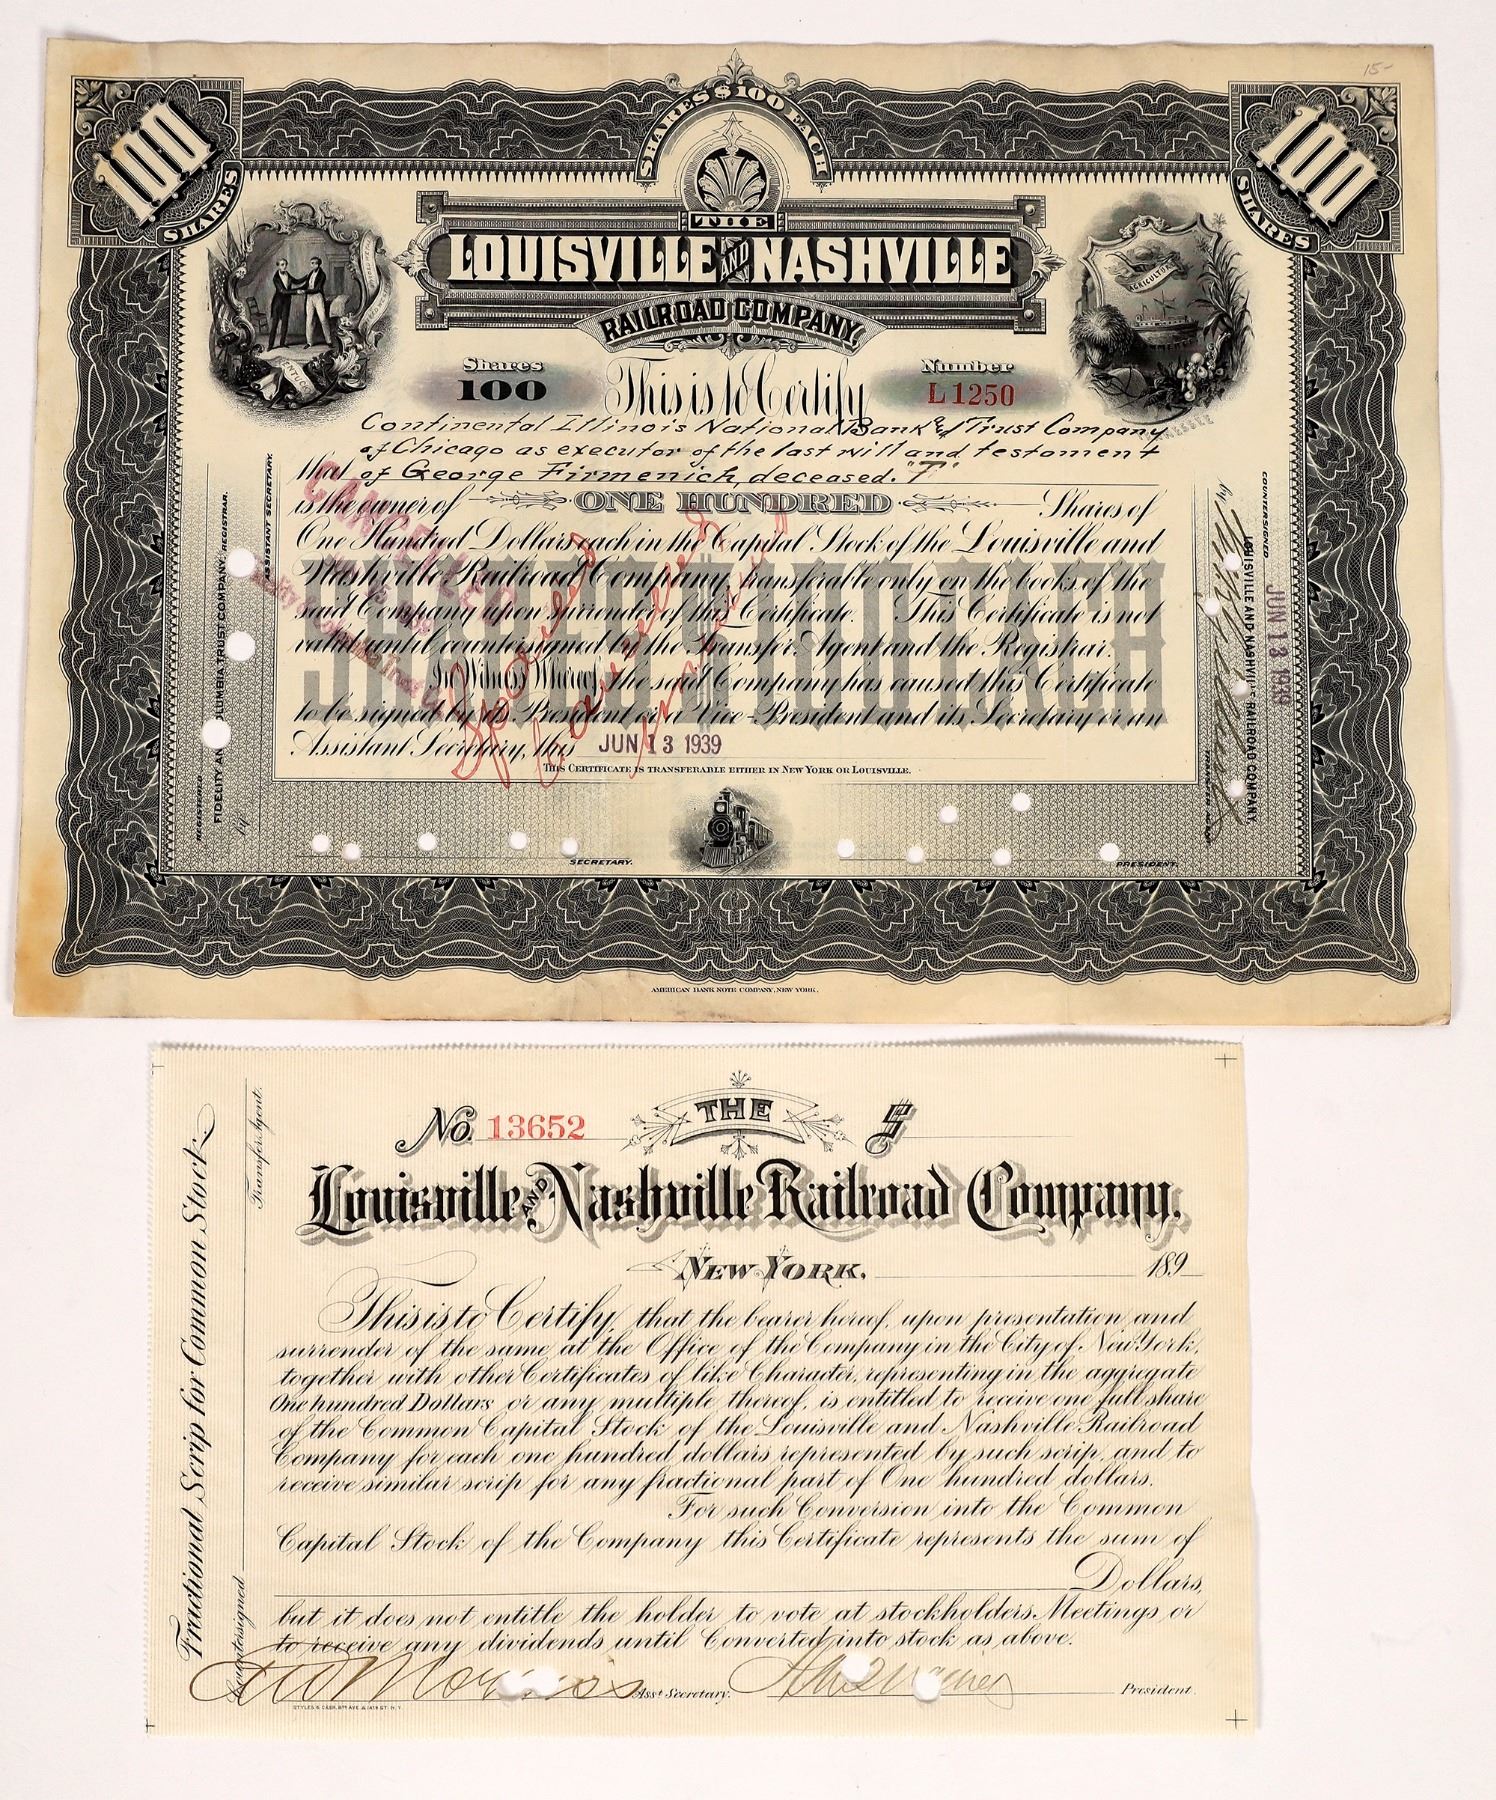 15-
100
SHARES
SHARES $100 EACH
100
SHARES
THE
LOUISVILLE AND NASHVILLE
RAILROAD COMPANY.
AGRICULTURE
COMMERCE
Shares
100
This is to Certify
Number
L1250
Continental Illinois National Bank & Trust Company
of Chicago as executor of the last will and testament
that of George Firmenich, deceased. "T"
is the owner of ONE HUNDRED Shares of
One Hundred Dollars each in the Capital Stock of the Louisville and
Nashville Railroad Company, transferable only on the books of the
said Company upon surrender of this Certificate. This Certificate is not
valid until countersigned by the Transfer Agent and the Registrar.
In Witness Whereof, the said Company has caused this Certificate
to be signed by its President or a Vice-President and its Secretary or an
Assistant Secretary, this JUN 13 1939
THIS CERTIFICATE IS TRANSFERABLE EITHER IN NEW YORK OR LOUISVILLE.
CANCELLED
ASSISTANT SECRETARY.
REGISTERED
FIDELITY AND COLUMBIA TRUST COMPANY, REGISTRAR.
by
COUNTERSIGNED
LOUISVILLE AND NASHVILLE RAILROAD COMPANY,
by
JUN 13 1939
SECRETARY.
PRESIDENT.
AMERICAN BANK NOTE COMPANY, NEW YORK.
No. 13652
THE
$
Louisville AND Nashville Railroad Company.
NEW YORK, 189
This is to Certify, that the bearer hereof, upon presentation and
surrender of the same at the Office of the Company in the City of New York,
together with other Certificates of like Character, representing in the aggregate
One hundred Dollars or any multiple thereof, is entitled to receive one full share
of the Common Capital Stock of the Louisville and Nashville Railroad
Company for each one hundred dollars represented by such scrip, and to
receive similar scrip for any fractional part of One hundred dollars.
For such Conversion into the Common
Capital Stock of the Company this Certificate represents the sum of
Dollars,
but it does not entitle the holder to vote at stockholders Meetings or
to receive any dividends until Converted into stock as above.
Asst Secretary.
President.
STYLES & CASH, 8TH AVE. & 14TH ST. N.Y.
Fractional Scrip for Common Stock
Countersigned
Transfer Agent.